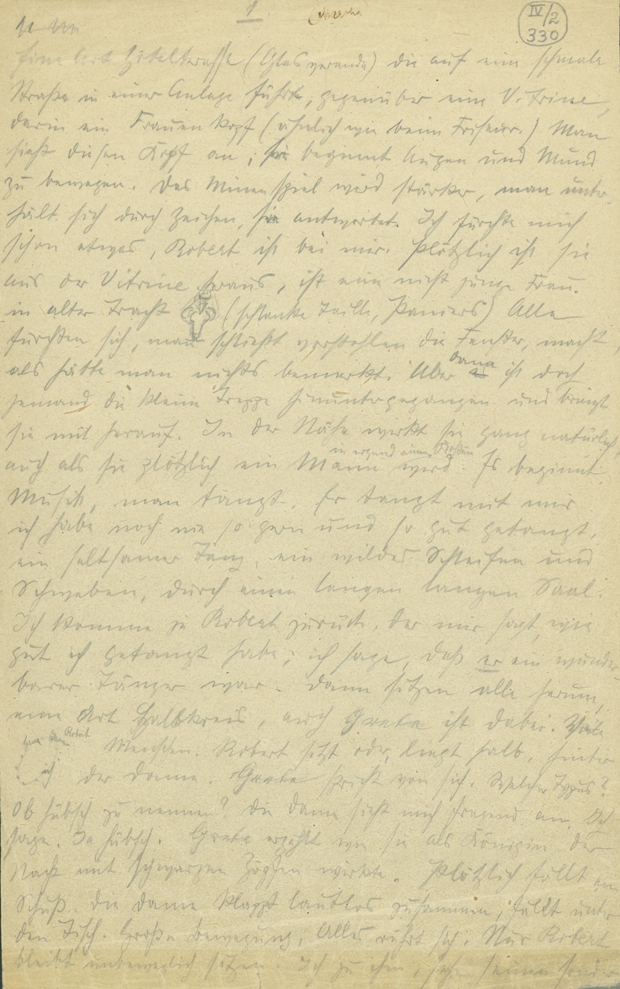 1
IV/2
330
Eine Art Hotelterrasse (Glasveranda) die auf eine schmale
Straße in einer Anlage führt, gegenüber eine Vitrine,
darin ein Frauenkopf (ähnlich wie beim Friseur.) Man
sieht diesen Kopf an; sie beginnt Augen und Mund
zu bewegen. Das Minenspiel wird stärker, man unter-
hält sich durch Zeichen, sie antwortet. Ich fürchte mich
schon etwas, Robert ist bei mir. Plötzlich ist sie
aus der Vitrine heraus, ist eine nicht junge Frau.
in alter Tracht (schlanke Taille, Paniers) Alle
fürchten sich, man schließt verstohlen die Fenster, macht,
als hätte man nichts bemerkt. Aber dann ist doch
jemand die kleine Treppe hinuntergegangen und bringt
sie mit herauf. In der Nähe wirkt sie ganz natürlich,
auch als sie plötzlich ein Mann in irgend einem Kostüm wird. Es beginnt
Musik, man tanzt. Er tanzt mit mir
ich habe noch nie so gern und so gut getanzt,
ein seltsamer Tanz, ein wildes Schleifen und
Schweben, durch einen langen langen Saal.
Ich komme zu Robert zurück, der mir sagt, wie
gut ich getanzt habe; ich sage, daß er ein wunder-
barer Tänzer war. Dann sitzen alle herum,
eine Art Halbkreis, auch Grete ist dabei. Viele
Menschen. Robert sitzt oder liegt halb, hinter
der Dame. Grete spricht von sich. Welcher Typus?
Ob hübsch zu nennen? Die Dame sieht mich fragend an. Ich
sage. Ja hübsch. Grete erzählt wie sie als Königin der
Nacht mit schwarzen Zöpfen wirkte. Plötzlich fällt ein
Schuß. Die Dame klappt lautlos zusammen, fällt unter
den Tisch. Große Bewegung, Alles rührt sich. Nur Robert
bleibt unbeweglich sitzen. Ich zu ihm, sehe seine